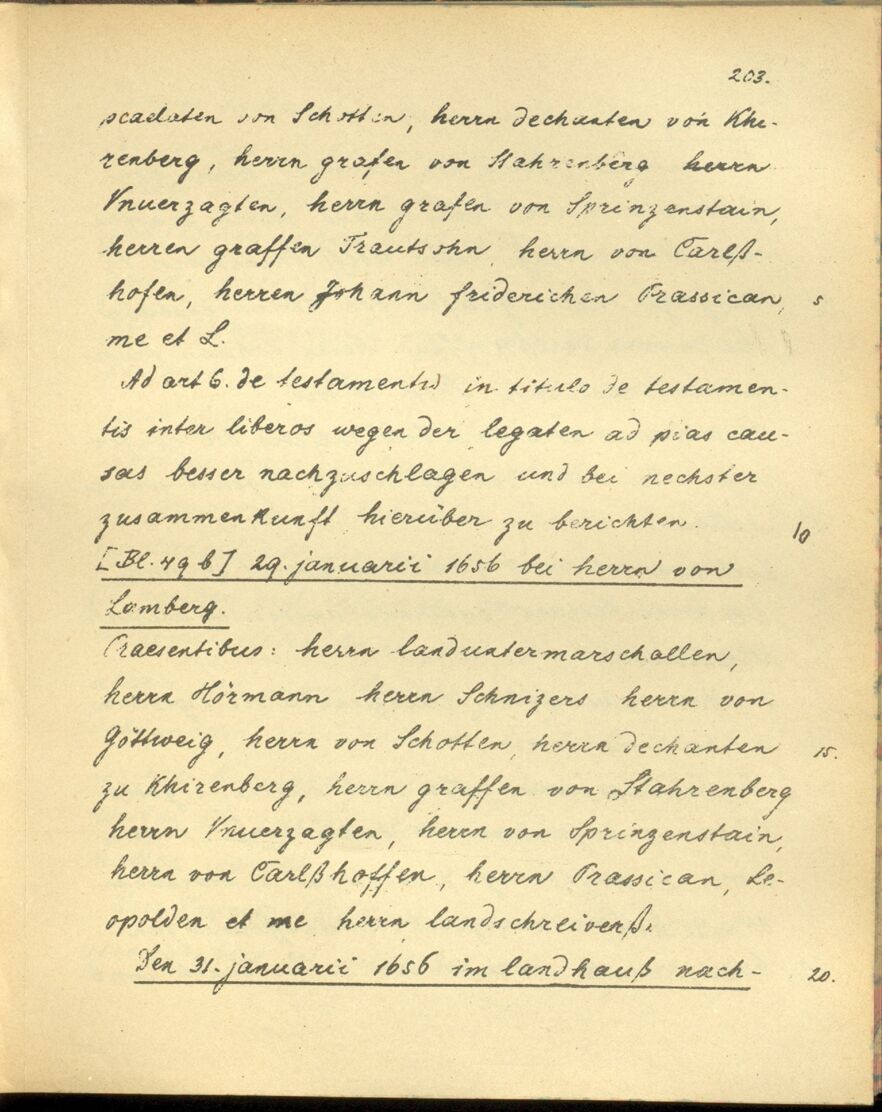 203.
von Schotten, herrn dechanten von Khi-
renberg, herrn grafen von Stahrenberg herrn
Vnuerzagten, herrn grafen von Sprinzenstain,
herren graffen Trautsohn herrn von Carlß-
hofen, herren Johann friderichen Prassican, 5
me et L.
Ad art 6. de testamentis in titulo de testamen-
tis inter liberos wegen der legaten ad pias cau-
sas besser nachzuschlagen und bei nechster
zusammenkunft hierüber zu berichten. 10
[Bl. 49 b] 29. januarii 1656 bei herrn von
Lamberg.
Praesentibus: herrn landuntermarschallen,
herrn Hörmann herrn Schnizers herrn von
Göttweig, herrn von Schotten, herrn dechanten 15.
zu Khirenberg, herrn graffen von Stahrenberg
herrn Vnuerzagten, herrn von Sprinzenstain,
herrn von Carlßhoffen, herrn Prassican, Le-
opolden et me herrn landschreiverß.
Den 31. januarii 1656 im landhauß nach- 20.